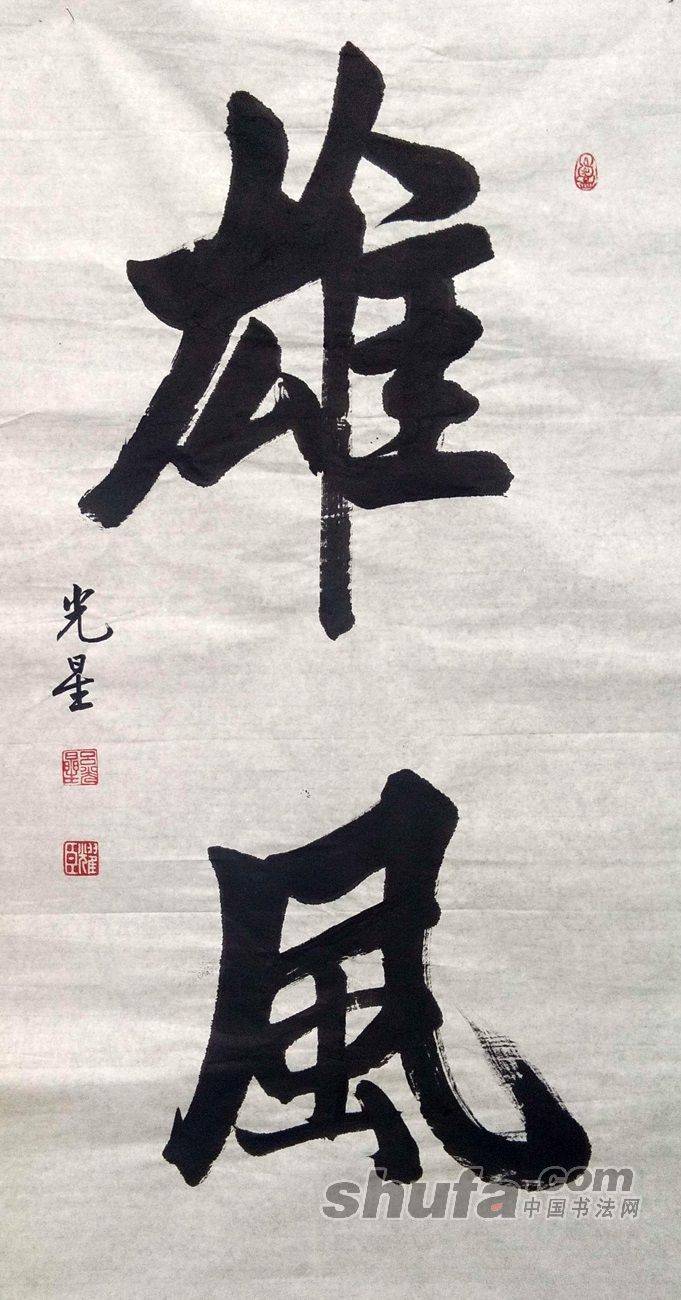 雄風
光星
shufa.com
中国书法网